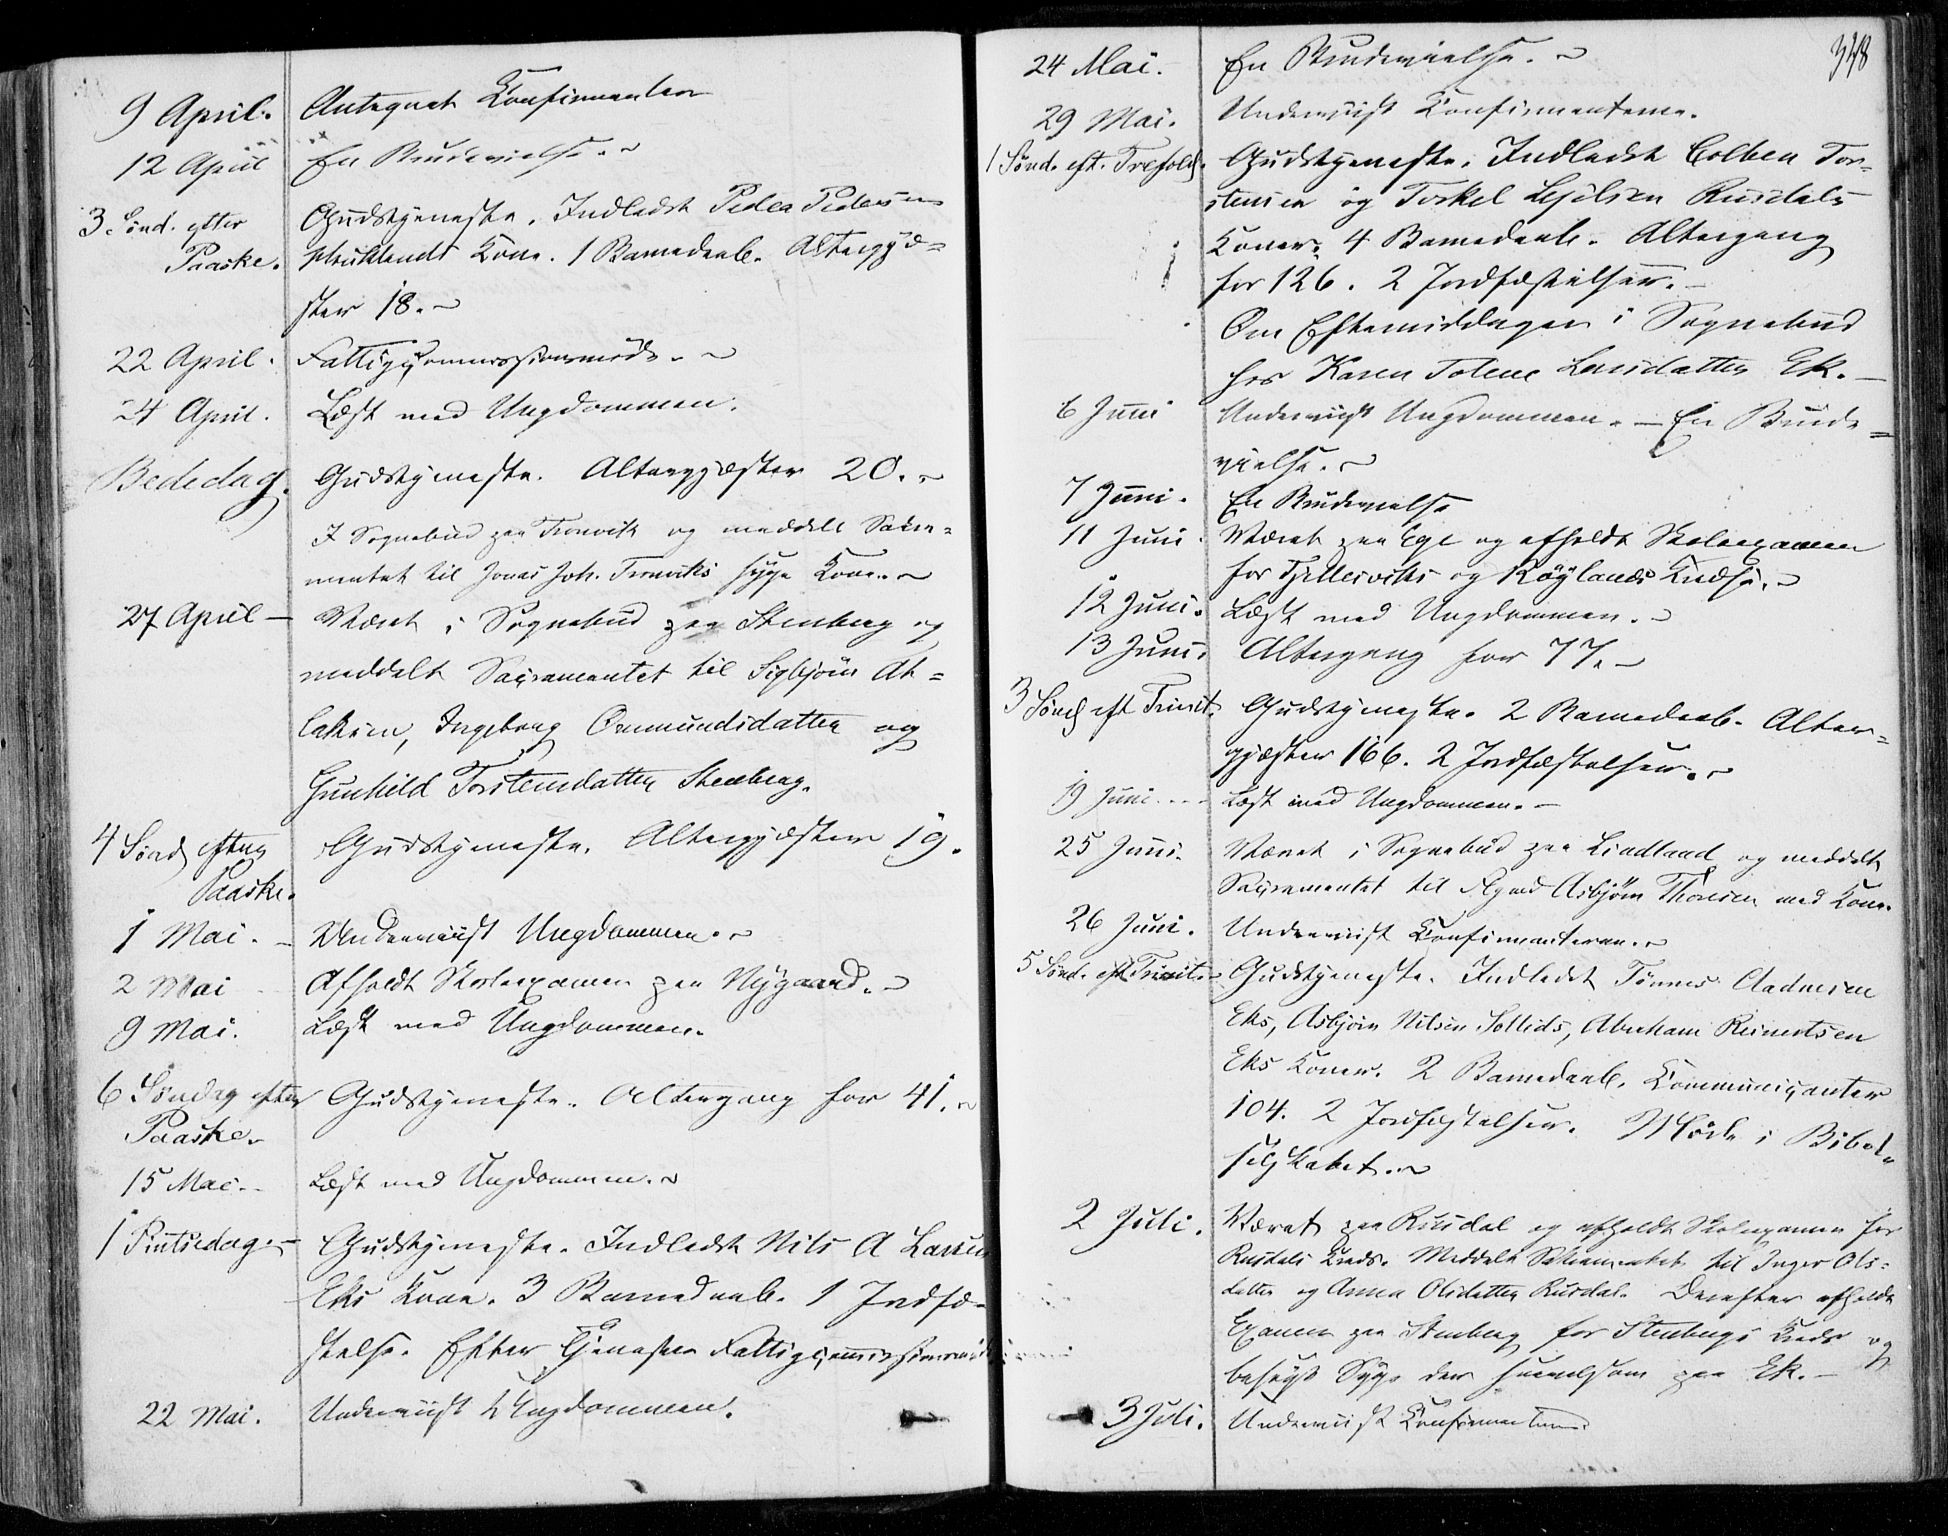 9 April. Antegnet Konfirmanter
12 April En Brudevielse.
3 Sønd. efter Gudstjeneste. Indledet Peder Pedersen
Paaske. Kone. 1 Barnedaab. Altergjæ-
ster 18.
22 April. Fattigcommissionsmøde.
24 April. Læst med Ungdommen.
Bededag. Gudstjeneste. Altergjæster 20.
I Sognebud paa Tronvik og meddelt Sakra-
mentet til Jonas Joh. Tronviks syge Kone.
27 April Været i Sognebud paa Stenberg og
meddelt Sacramentet til Sigbjørn At-
laksen, Ingeborg Ommundsdatter og
Gunhild Torstensdatter Stenberg.
4 Sønd efter Gudstjeneste. Altergjæster 19.
Paaske.
1 Mai. Underviist Ungdommen.
2 Mai Afholdt Skoleexamen paa Nygaard.
9 Mai. Læst med Ungdommen.
6 Søndag efter Gudstjeneste. Altergang for 41.
Paaske.
15 Mai. Læst med Ungdommen.
1 Pintsedag. Gudstjeneste. Indledet Nils A Larsen
Eks Kone. 3 Barnedaab. 1 Jordfæ-
stelse. Efter Tjenesten Fattigcommissionsmøde
22 Mai. Underviist Ungdommen.
348
24 Mai. En Brudevielse.
29 Mai. Underviist Konfirmanterne.
1 Sønd. eft. Trefold. Gudstjeneste. Indledet Colben Tor-
stensen og Torkel Kjelsen Rusdals
Koner. 4 Barnedaab. Altergang
for 126. 2 Jordfæstelser.
Om Eftermiddagen i Sognebud
hos Karen Tolene Larsdatter Ek.
6 Juni Underviist Ungdommen. — En Brude-
vielse.
7 Juni. En Brudevielse
11 Juni. Været paa Ege og afholdt Skoleexamen
for Tjellesviks og Røylands Kredse.
12 Juni. Læst med Ungdommen.
13 Juni. Altergang for 77.
3 Sønd eft Trinit. Gudstjeneste. 2 Barnedaab. Alter-
gjæster 166. 2 Jordfæstelser.
19 Juni Læst med Ungdommen.
25 Juni. Været i Sognebud paa Lindland og meddelt
Sacramentet til Asbjørn Thorsen med Kone.
26 Juni. Underviist Konfirmanterne.
5 Sønd. eft Trinit. Gudstjeneste. Indledet Tønnes Aadnesen
Eks, Asbjørn Nilsen Sollids, Abraham Reinertsen
Eks Koner. 2 Barnedaab. Communicanter
104. 2 Jordfæstelser. Møde i Bibel-
selskabet.
2 Juli. Været paa Rusdal og afholdt Skoleexamen for
Rusdals Kreds. Meddelt Sakramentet til Inger Ols-
datter og Anna Olsdatter Rusdal. Derefter afholdt
Examen paa Stenberg for Stenbergs Kreds og
besøgt Syge paa Ek.
3 Juli. Underviist Konfirmanterne.